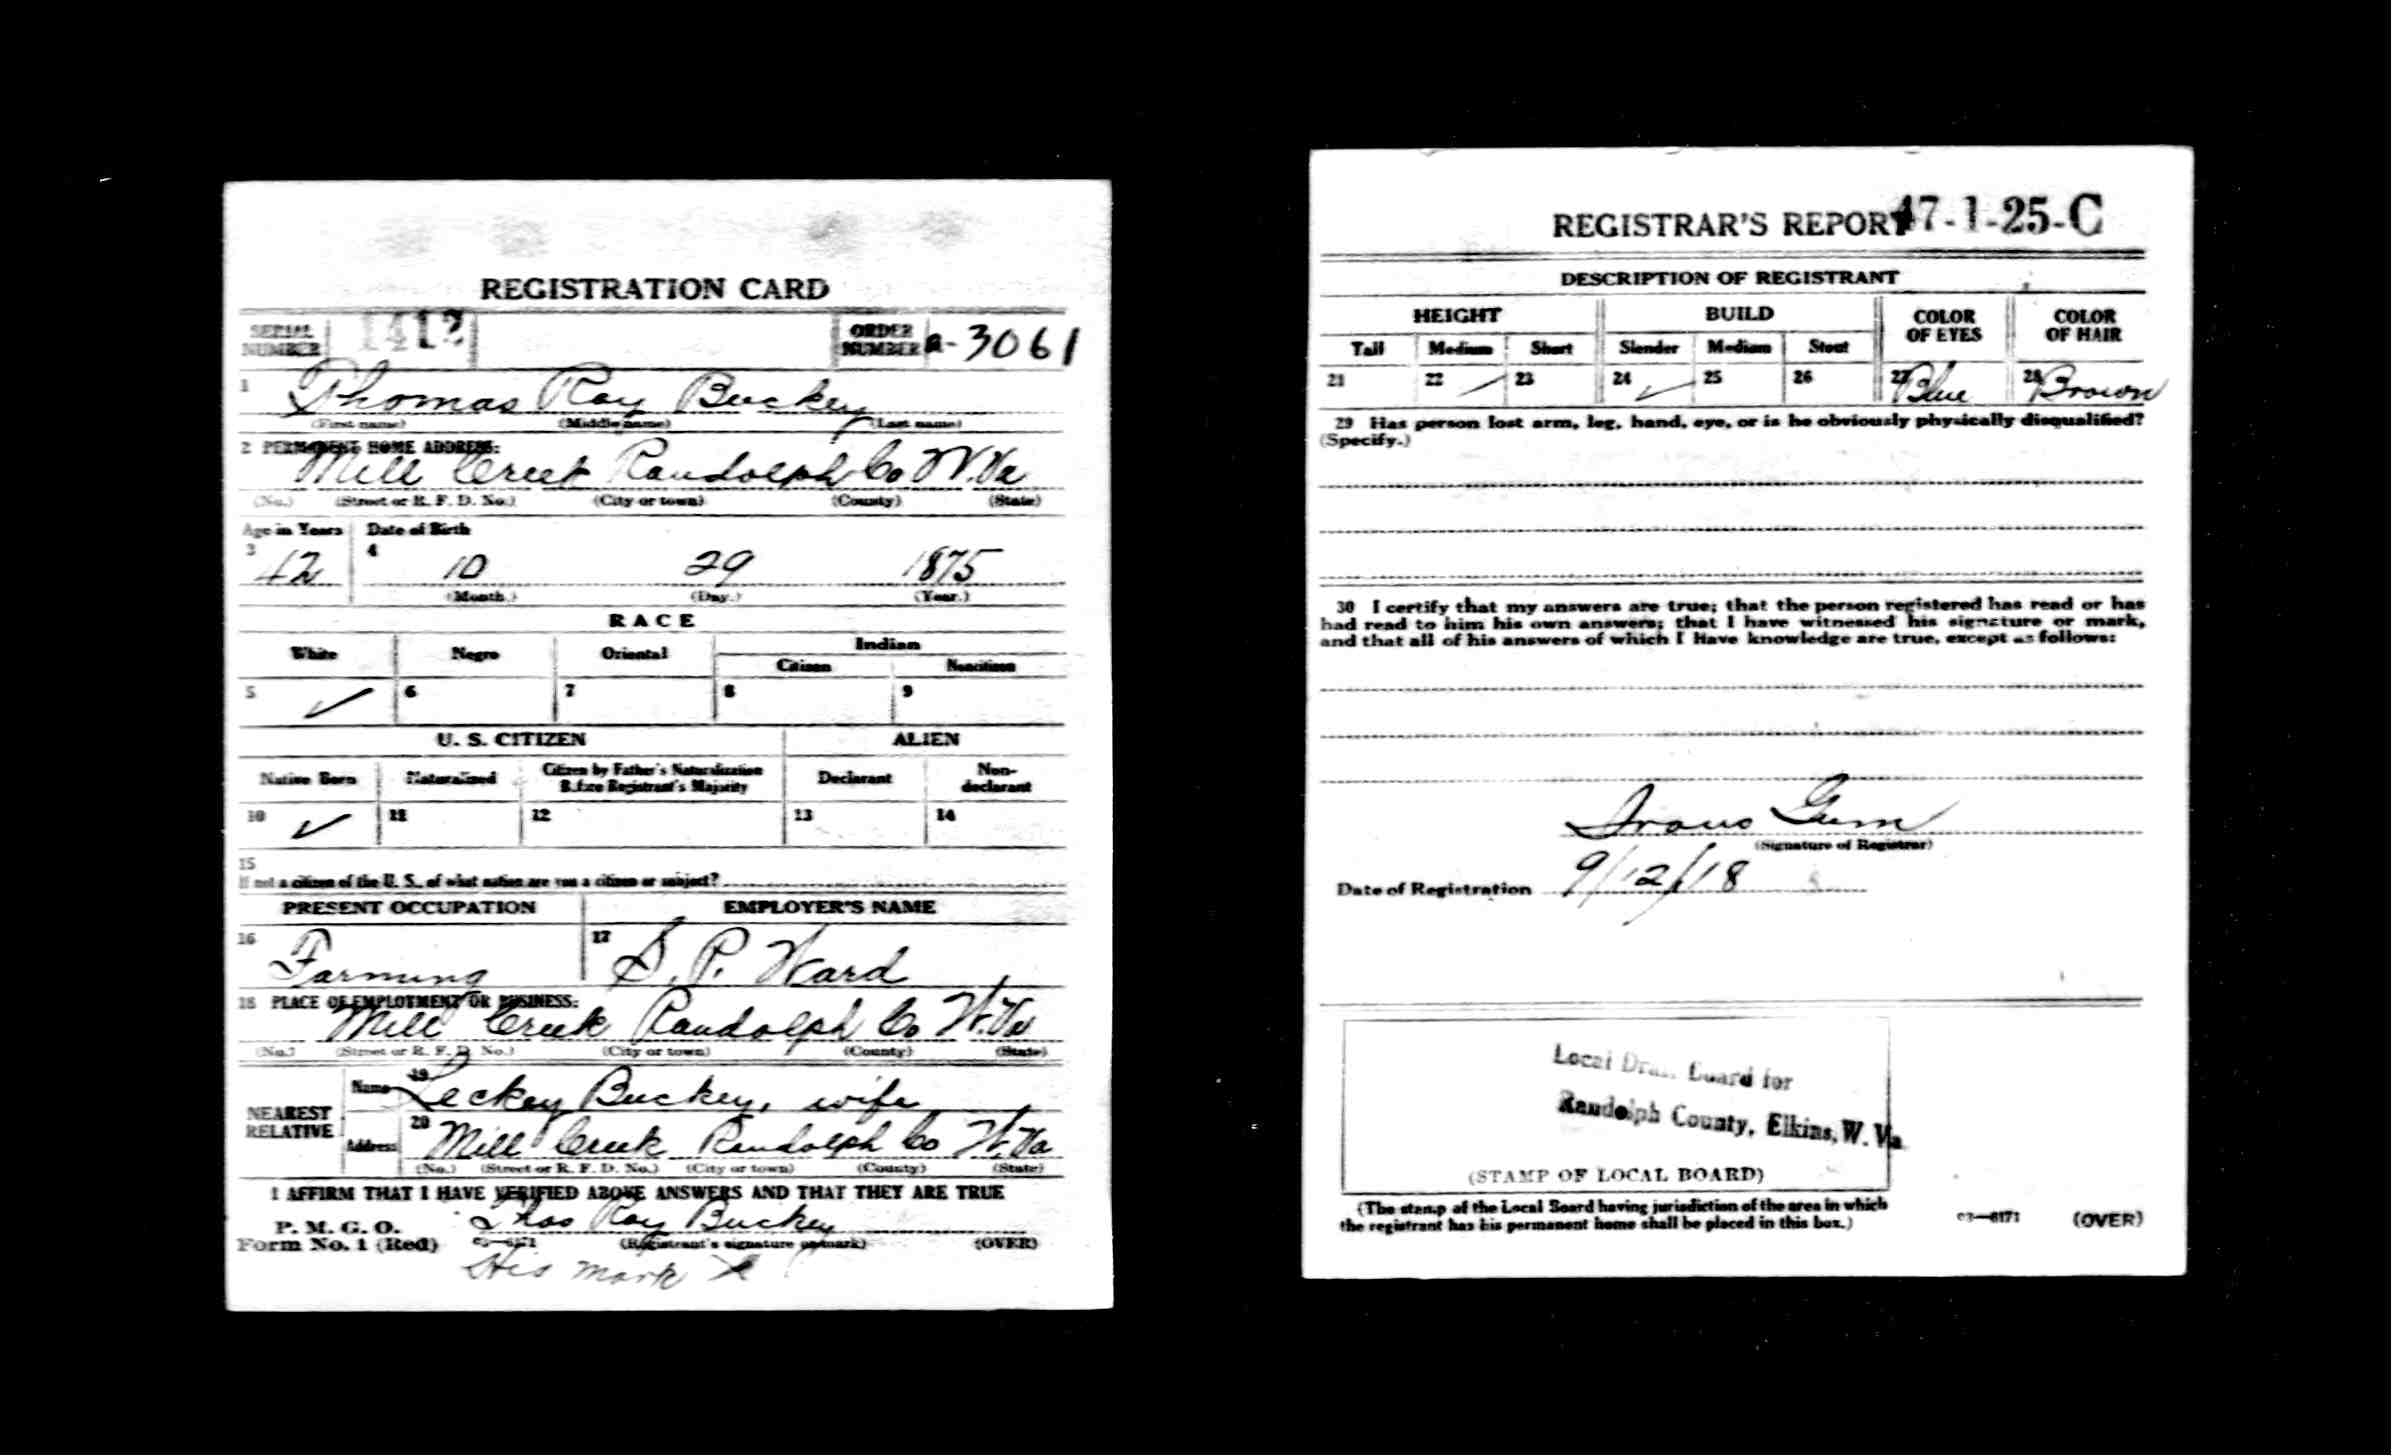 REGISTRATION CARD
SERIAL NUMBER 1412 ORDER NUMBER a-3061
1 Thomas Roy Buckey
(First name) (Middle name) (Last name)
2 PERMANENT HOME ADDRESS:
Mill Creek Randolph Co W.Va
(No.) (Street or R. F. D. No.) (City or town) (County) (State)
Age in Years Date of Birth
3 42 4 10 29 1875
(Month.) (Day.) (Year.)
RACE
White Negro Oriental Indian
Citizen Noncitizen
5 ✓ 6 7 8 9
U. S. CITIZEN ALIEN
Native Born Naturalized Citizen by Father's Naturalization Before Registrant's Majority Declarant Non-declarant
10 ✓ 11 12 13 14
15
If not a citizen of the U. S., of what nation are you a citizen or subject?
PRESENT OCCUPATION EMPLOYER'S NAME
16 Farming 17 S. P. Ward
18 PLACE OF EMPLOYMENT OR BUSINESS:
Mill Creek Randolph Co W.Va
(No.) (Street or R. F. D. No.) (City or town) (County) (State)
NEAREST RELATIVE Name 19 Leckey Buckey, wife
Address 20 Mill Creek Randolph Co W.Va
(No.) (Street or R. F. D. No.) (City or town) (County) (State)
I AFFIRM THAT I HAVE VERIFIED ABOVE ANSWERS AND THAT THEY ARE TRUE
P. M. G. O.
Form No. 1 (Red) 03—6171 Thos Roy Buckey
(Registrant's signature or mark) (OVER)
His mark X
REGISTRAR'S REPORT 47-1-25-C
DESCRIPTION OF REGISTRANT
HEIGHT BUILD COLOR OF EYES COLOR OF HAIR
Tall Medium Short Slender Medium Stout
21 22 ✓ 23 24 ✓ 25 26 27 Blue 28 Brown
29 Has person lost arm, leg, hand, eye, or is he obviously physically disqualified?
(Specify.)
30 I certify that my answers are true; that the person registered has read or has
had read to him his own answers; that I have witnessed his signature or mark,
and that all of his answers of which I have knowledge are true, except as follows:
Gum
(Signature of Registrar)
Date of Registration 9/12/18
Local Draft Board for
Randolph County, Elkins, W. Va.
(STAMP OF LOCAL BOARD)
(The stamp of the Local Board having jurisdiction of the area in which
the registrant has his permanent home shall be placed in this box.)
03—6171 (OVER)